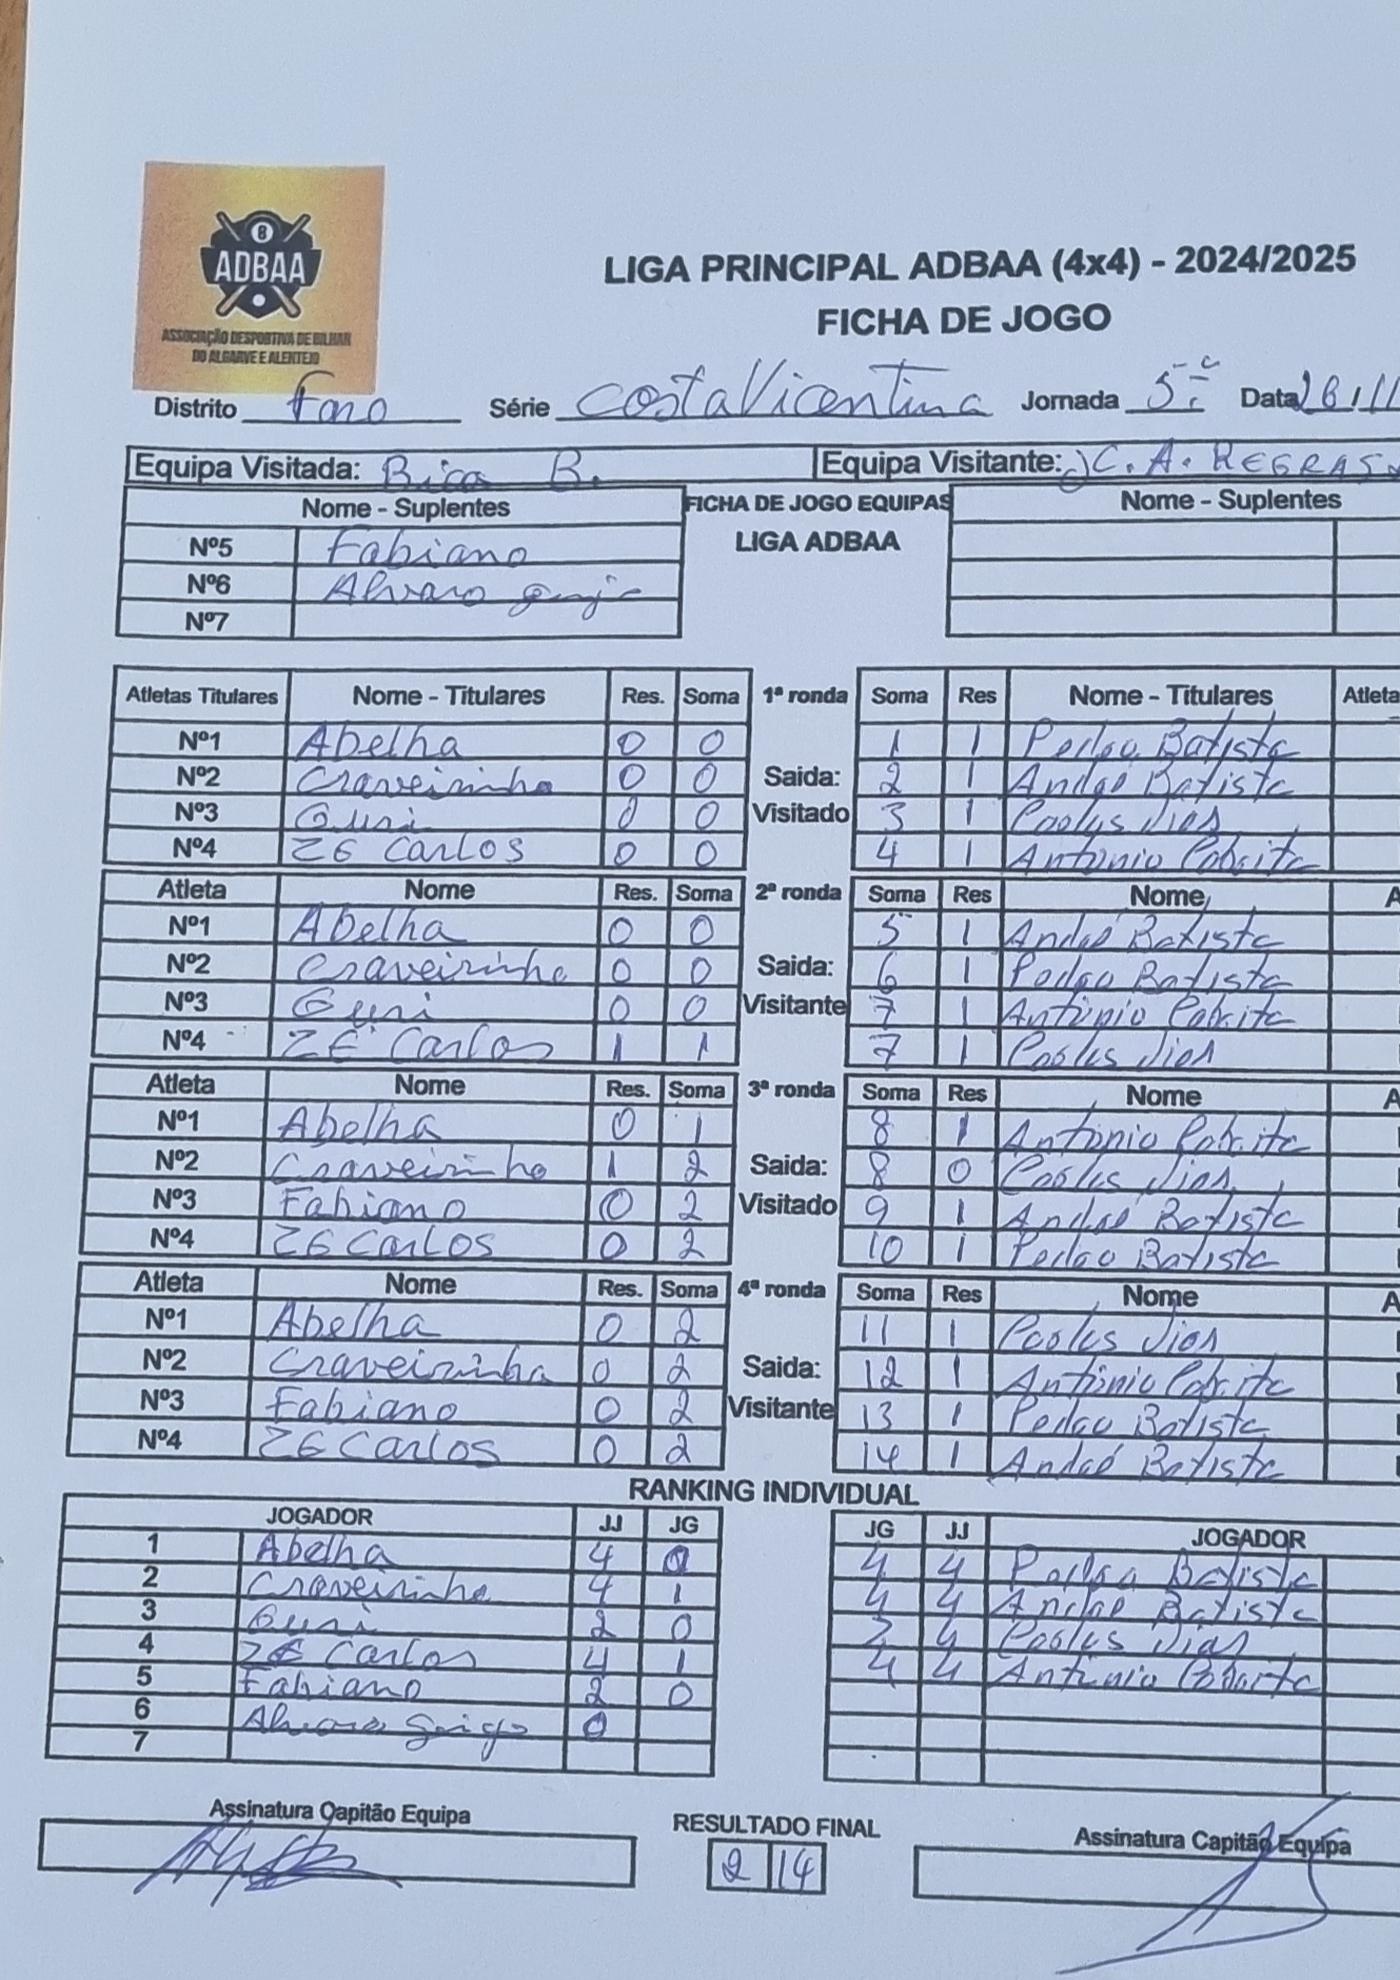 8
ADBAA
ASSOCIAÇÃO DESPORTIVA DE BILHAR
DO ALGARVE E ALENTEJO
LIGA PRINCIPAL ADBAA (4x4) - 2024/2025
FICHA DE JOGO
Distrito Faro Série Costa Vicentina Jornada 5ª Data
Equipa Visitada: Bica B. Equipa Visitante: J.C. A. REGRAS
Nome - Suplentes FICHA DE JOGO EQUIPAS Nome - Suplentes
Nº5 Fabiano LIGA ADBAA
Nº6 Alvaro
Nº7
Atletas Titulares Nome - Titulares Res. Soma 1ª ronda Soma Res Nome - Titulares Atleta
Nº1 Abelha 0 0 1 1 Pedro Batista
Nº2 Craveirinha 0 0 Saida: 2 1 André Batista
Nº3 Guri 0 0 Visitado 3 1 Carlos Dias
Nº4 Zé Carlos 0 0 4 1 António Cabrita
Atleta Nome Res. Soma 2ª ronda Soma Res Nome A
Nº1 Abelha 0 0 5 1 André Batista
Nº2 Craveirinha 0 0 Saida: 6 1 Pedro Batista
Nº3 Guri 0 0 Visitante 7 1 António Cabrita
Nº4 Zé Carlos 1 1 7 1 Carlos Dias
Atleta Nome Res. Soma 3ª ronda Soma Res Nome A
Nº1 Abelha 0 1 8 1 António Cabrita
Nº2 Craveirinha 1 2 Saida: 8 0 Carlos Dias
Nº3 Fabiano 0 2 Visitado 9 1 André Batista
Nº4 Zé Carlos 0 2 10 1 Pedro Batista
Atleta Nome Res. Soma 4ª ronda Soma Res Nome A
Nº1 Abelha 0 2 11 1 Carlos Dias
Nº2 Craveirinha 0 2 Saida: 12 1 António Cabrita
Nº3 Fabiano 0 2 Visitante 13 1 Pedro Batista
Nº4 Zé Carlos 0 2 14 1 André Batista
RANKING INDIVIDUAL
JOGADOR JJ JG JG JJ JOGADOR
1 Abelha 4 0 4 4 Pedro Batista
2 Craveirinha 4 1 4 4 André Batista
3 Guri 2 0 2 4 Carlos Dias
4 Zé Carlos 4 1 4 4 António Cabrita
5 Fabiano 2 0
6 Alvaro 0
7
Assinatura Capitão Equipa RESULTADO FINAL Assinatura Capitão Equipa
2 14